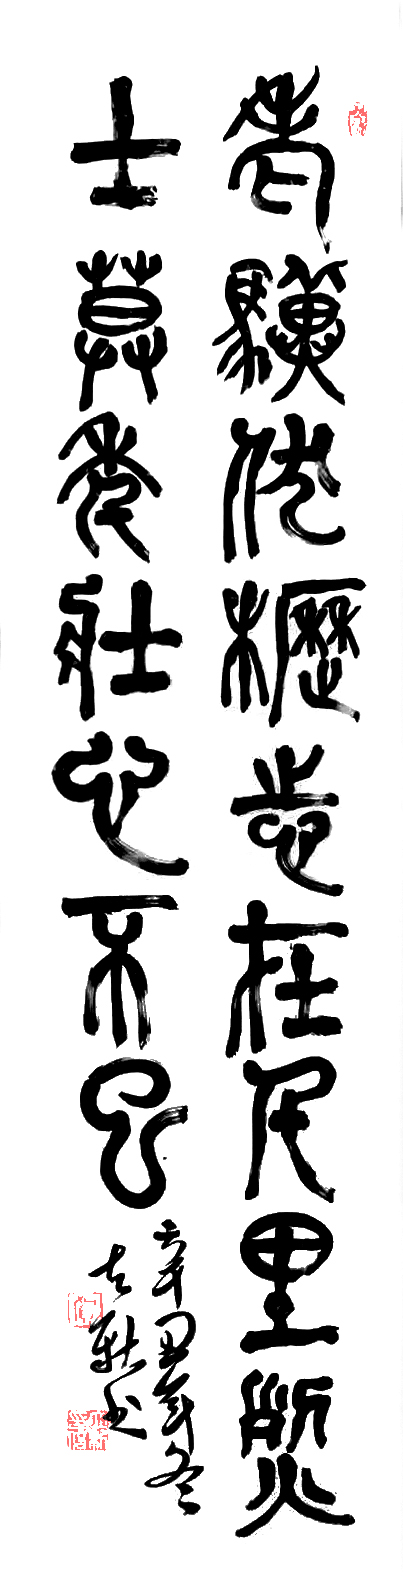 老驥伏櫪志在千里烈
士暮年壯心不已
辛丑年冬
书